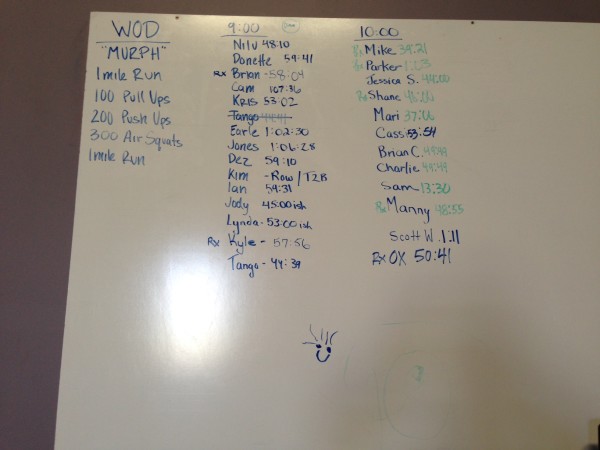 WOD
"MURPH"
1 mile Run
100 Pull Ups
200 Push Ups
300 Air Squats
1 mile Run
9:00
Nilu 48:10
Donette 59:41
RX Brian - 58:04
Cam 107:36
KRIS 53:02
Tango 44:41
Earle 1:02:30
Jones 1:06:28
Dez 59:10
Kim - Row / T2B
Ian 59:31
Jody 45:00ish
Lynda - 53:00ish
Rx Kyle - 57:56
Tango - 44:39
10:00
Mike 39:21
Parker
Jessica S. 44:00
Rx Shane
Mari 37:06
Cass 53:54
Brian C.
Charlie
Sam 13:30
Rx Manny 48:55
Scott W. 1:11
Rx OX 50:41